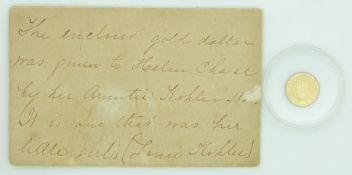 The enclosed gold dollar
was given to Helen Chase
by her Auntie Kohler
It is one that was her
little girl's (Louie Kohler)